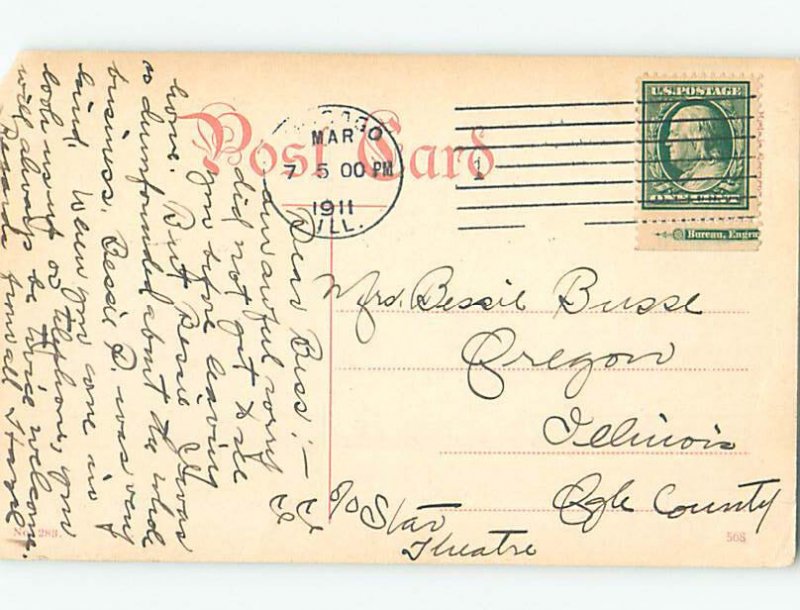 Post Card
MAR
7 5 00 PM
1911
ILL.
1
U.S. POSTAGE
ONE CENT
Bureau, Engra
Dear Bess:—
Am awful sorry I
did not get to see
you before leaving
here. But Bessie I was
so dumfounded about the whole
business. Bessie D. was very
kind. When you come in
look us up or telephone, you
will always be twice welcome.
Regards from all Hazel
Mrs. Bessie Busse
Oregon
Illinois
Ogle County
c/o Star
Theatre
No. 283.
508